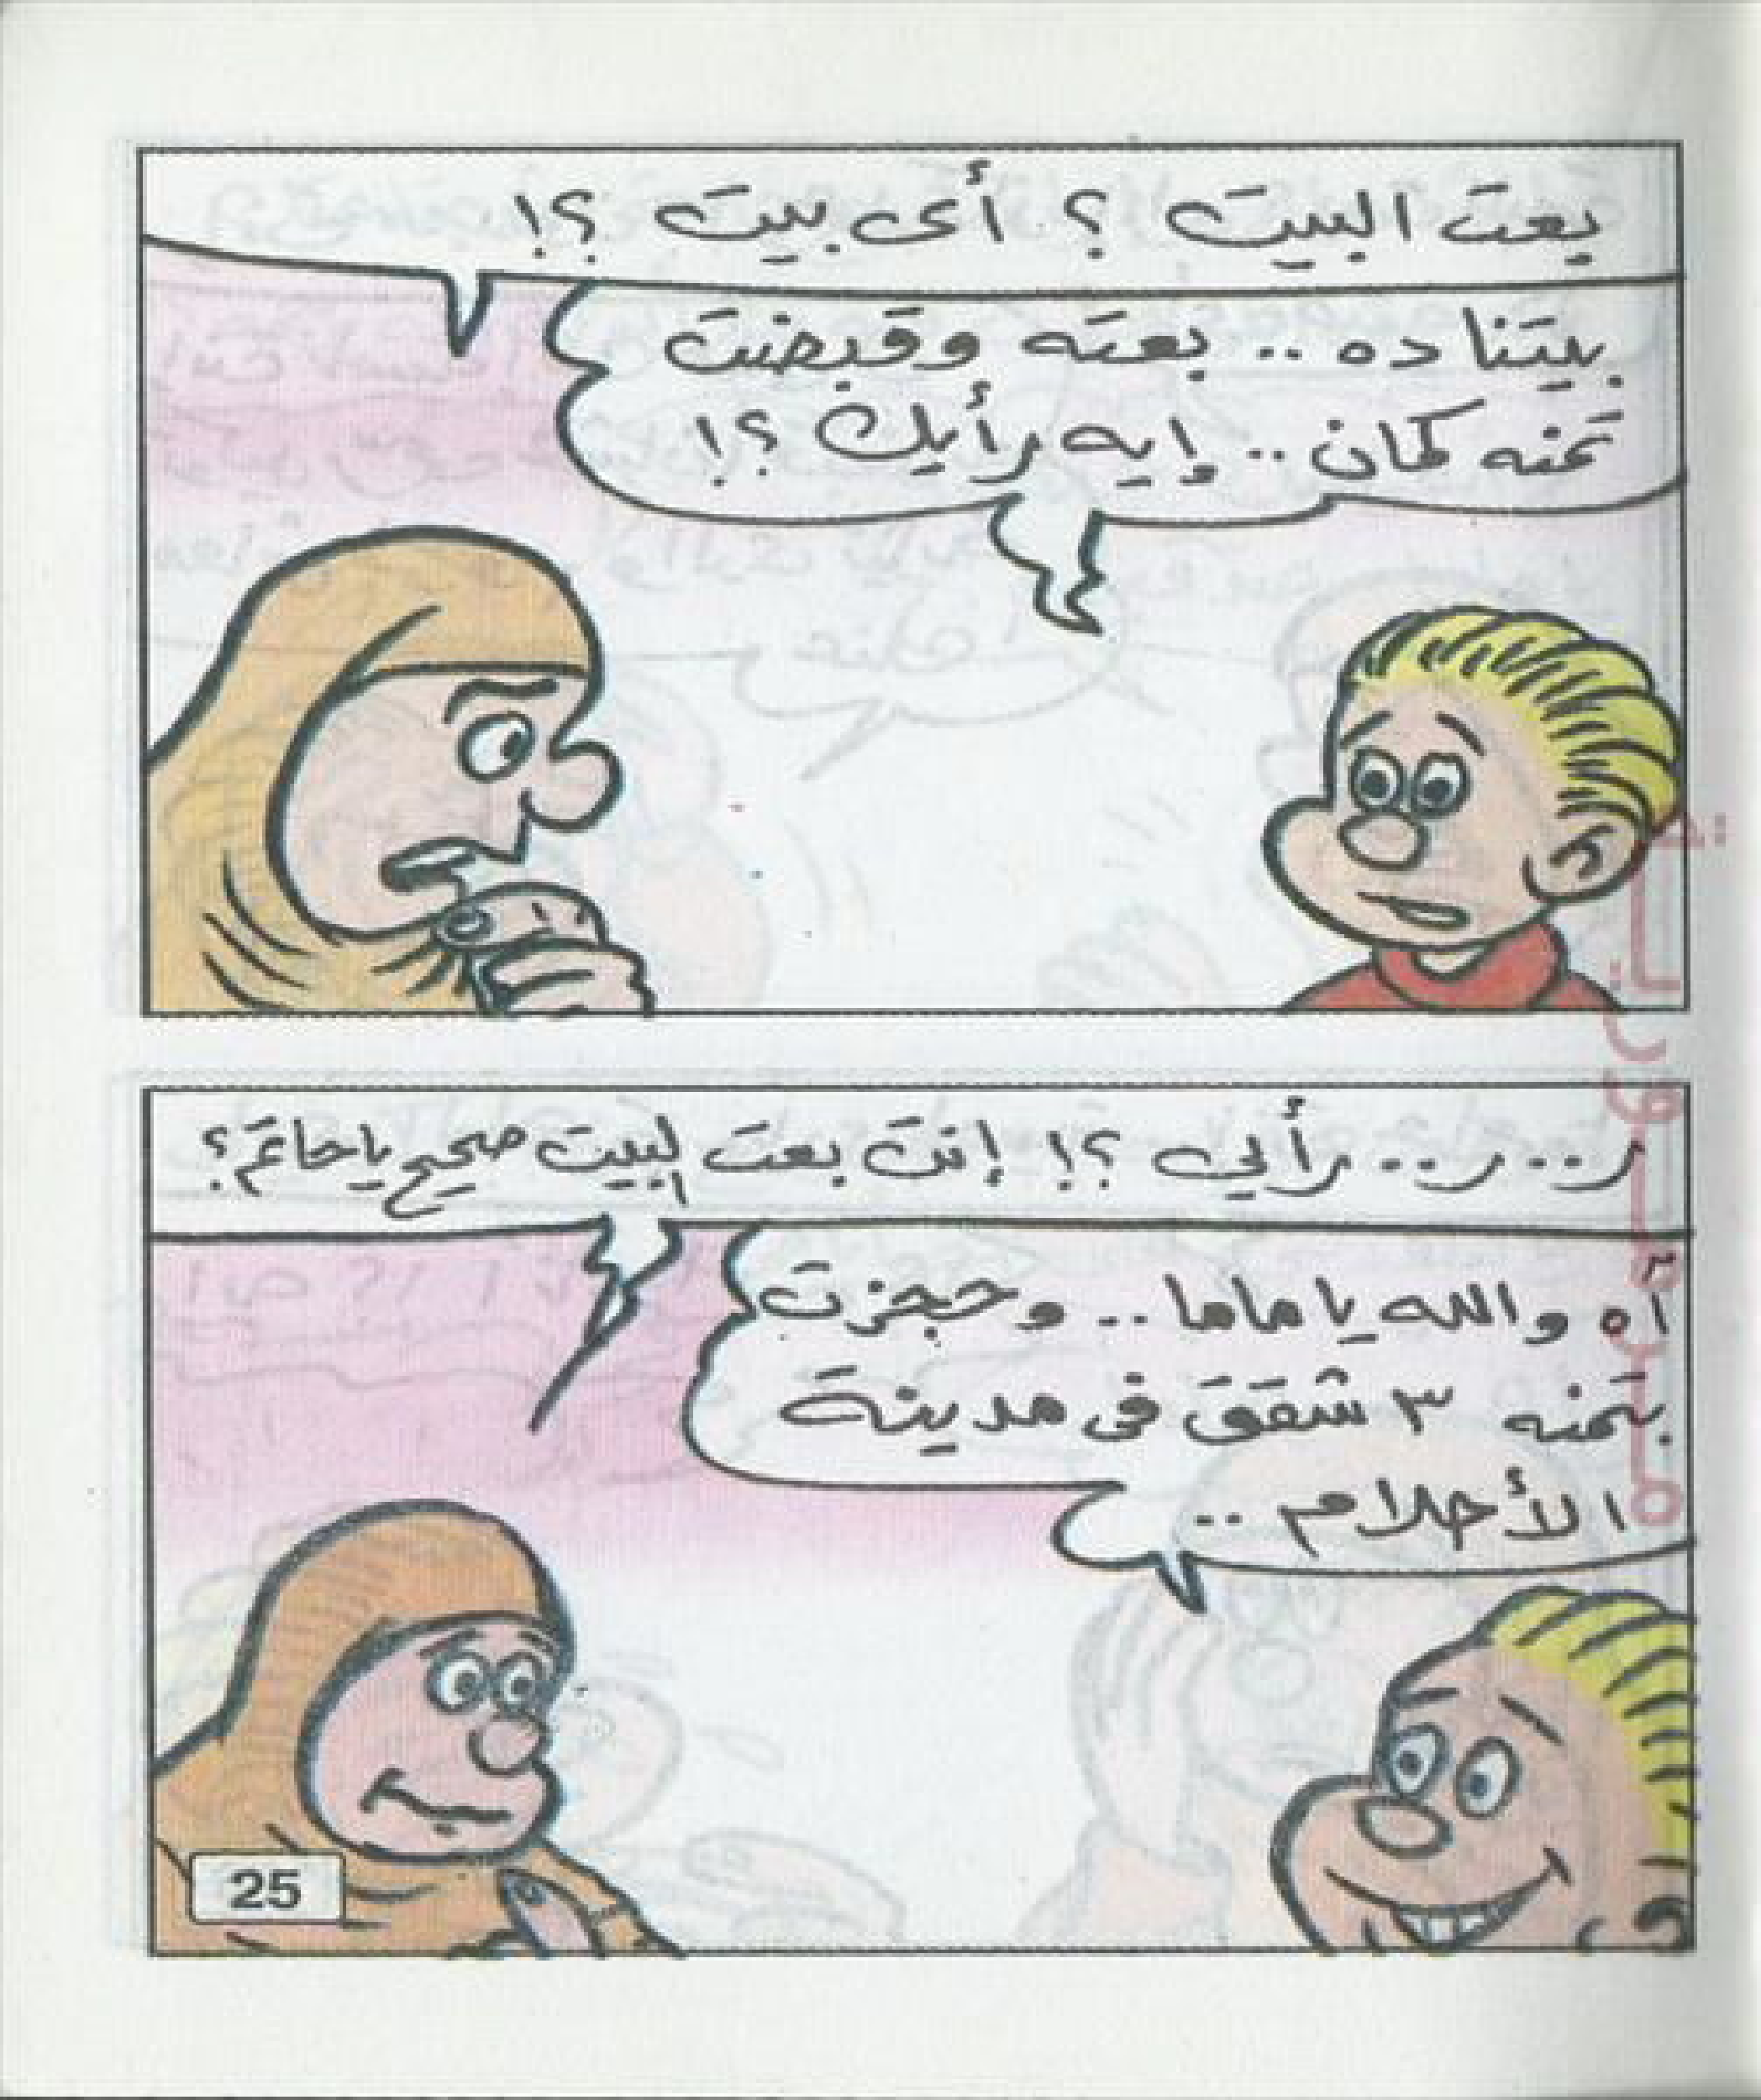 بعت البيت ؟ أى بيت ؟!
بيتنا ده .. بعته وقبضت
تمنه كمان .. إيه رأيك ؟!
ر .. ر .. رأيي ؟! إنت بعت البيت صحيح يا حاتم ؟
آه والله يا ماما .. وحجزت
بتمنه ٣ شقق فى مدينة
الأحلام ..
25